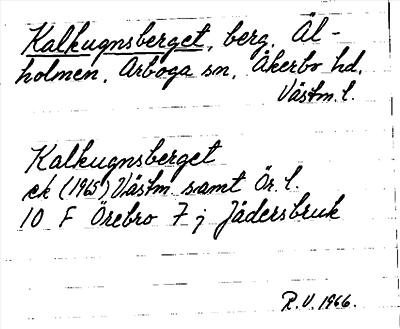 Kalkugnsberget, berg, Äl-
holmen, Arboga sn, Åkerbo hd,
Västm. l.
Kalkugnsberget
ek (1965) Västm. samt Ör. l.
10 F Örebro 7 j Jädersbruk
R.V. 1966.